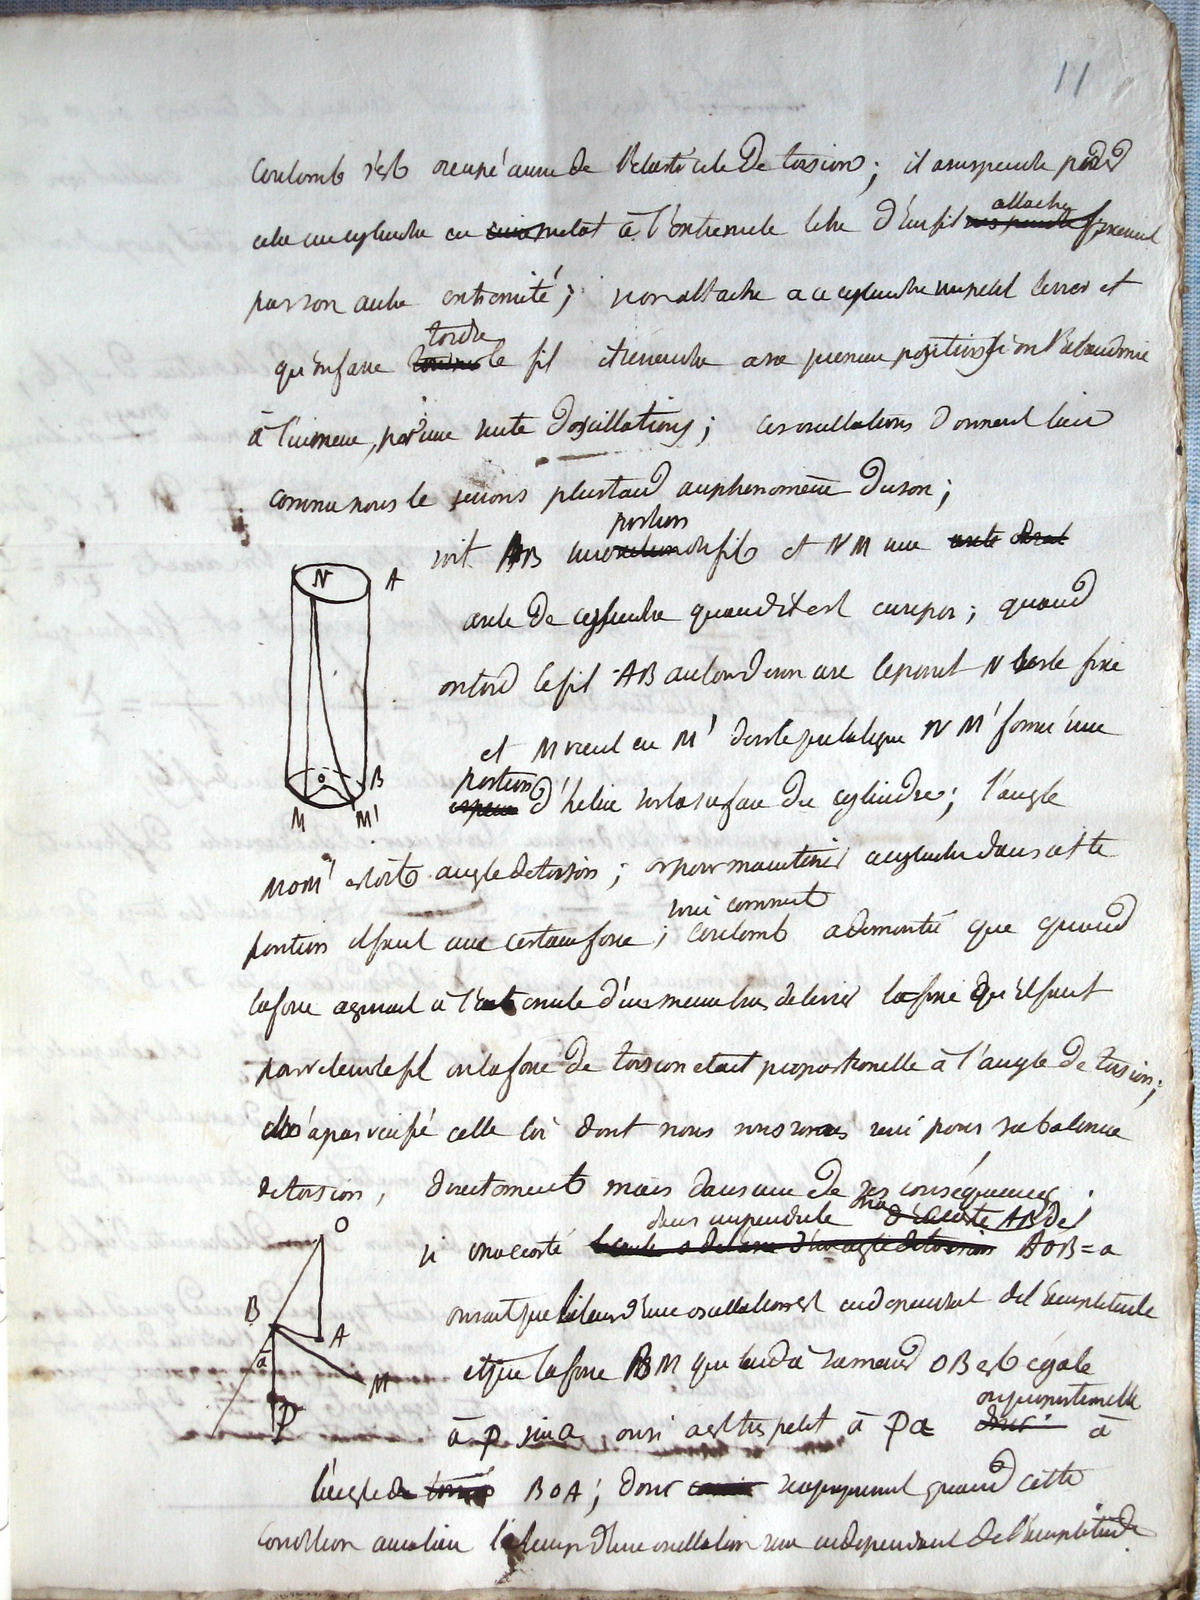 11
Coulomb s'est occupé aussi de l'elasticité de torsion; il a suspendu
cube un cylindre en metal à l'extremité libre d'un fil attaché fixement
par son autre extremité; si on attache a ce cylindre un petit levier et
qu'on fasse tordre le fil il reviendra a sa premiere position si on l'abandonne
à lui meme, par une suite d'oscillations; ces oscillations donnent lieu
comme nous le verrons plus tard au phenomène du son;
soit AB une portion du fil et NM une
arete de cylindre quand il est en repos; quand
on tord le fil AB autour de son axe le point N reste fixe
et M vient en M' dont NM' forme une
portion d'helice sur la surface du cylindre; l'angle
MOM' est dit angle de torsion; or pour maintenir ce cylindre dans cette
voici comment
position il faut une certaine force; Coulomb a demontré que quand
la force agissait à l'extremité d'un meme bras de levier la force qu'il faut
la force de torsion etait proportionelle à l'angle de torsion;
il n'a pas verifié cette loi dont nous nous servi pour sa balance
de torsion, directement mais dans une de ses conséquences;
dans un pendule AB de
si on ecarte AOB = a
on sait que la durée d'une oscillation est independant de l'amplitude
et que la force BM qui tend à ramener OB est égale
à P sin a ou si a est tres petit à Pa ou proportionelle à
l'angle BOA; donc reciproquement quand cette
condition aura lieu le temps d'une oscillation sera independant de l'amplitude.
N A
B
M M'
O
B
A
a
M
P